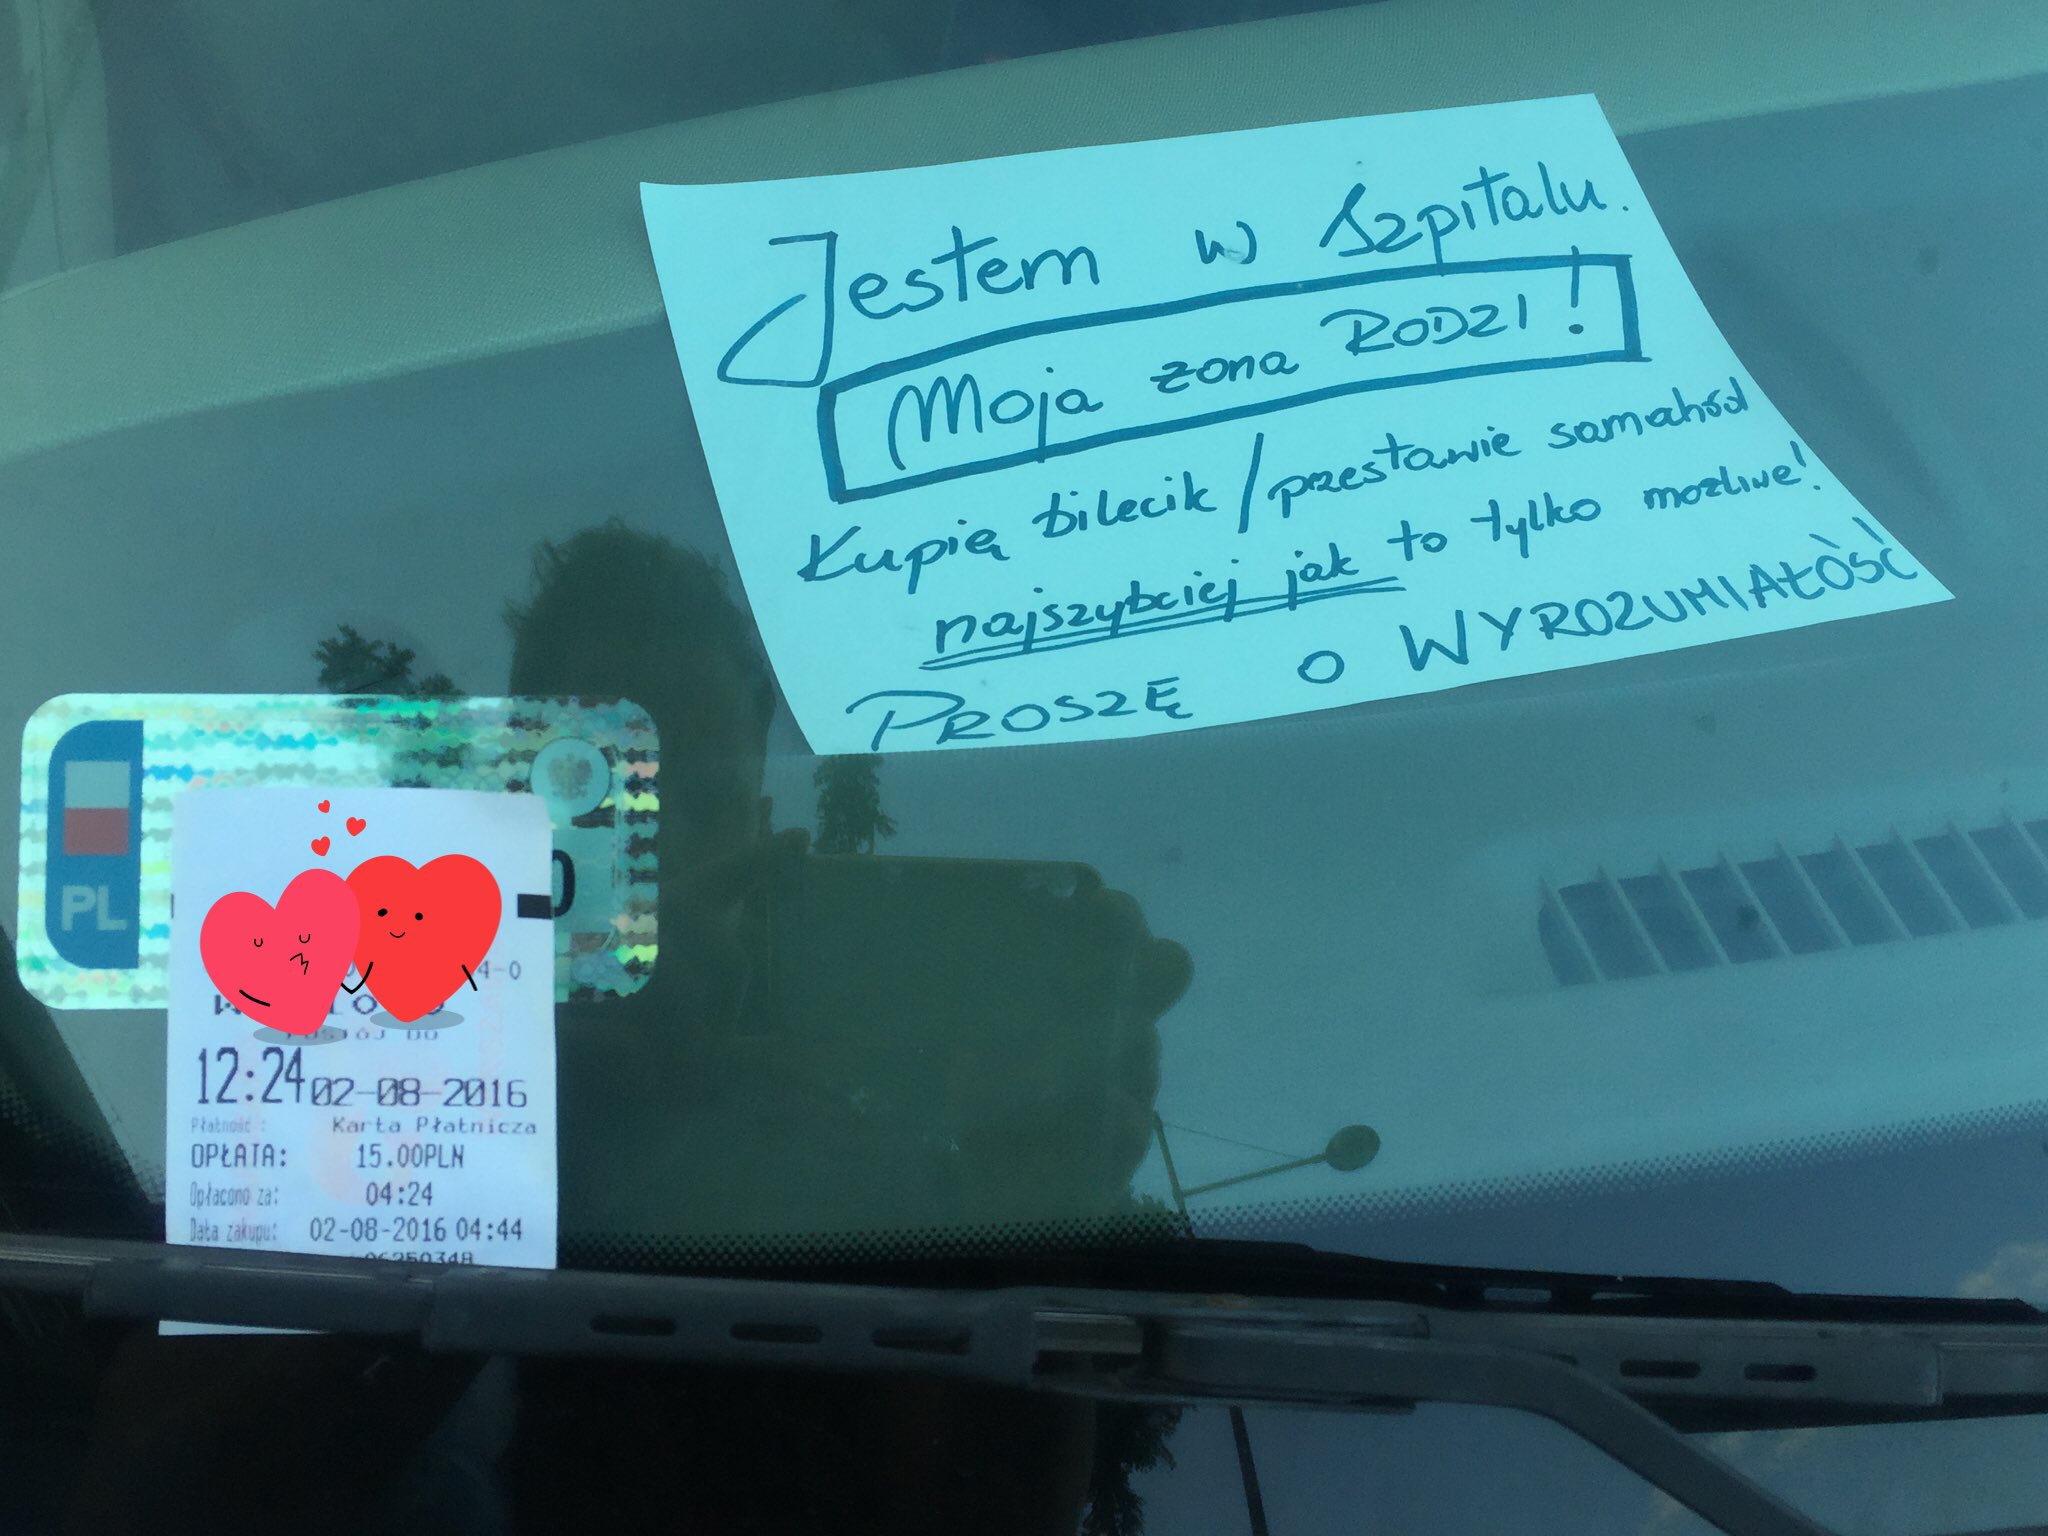 Jestem w Szpitalu.
Moja żona RODZI!
Kupię bilecik/przestawię samochód
najszybciej jak to tylko możliwe!
PROSZĘ O WYROZUMIAŁOŚĆ!
PL
4-0
POSTÓJ DO
12:24 02-08-2016
Płatność: Karta Płatnicza
OPŁATA: 15.00PLN
Opłacono za: 04:24
Data zakupu: 02-08-2016 04:44
06250348